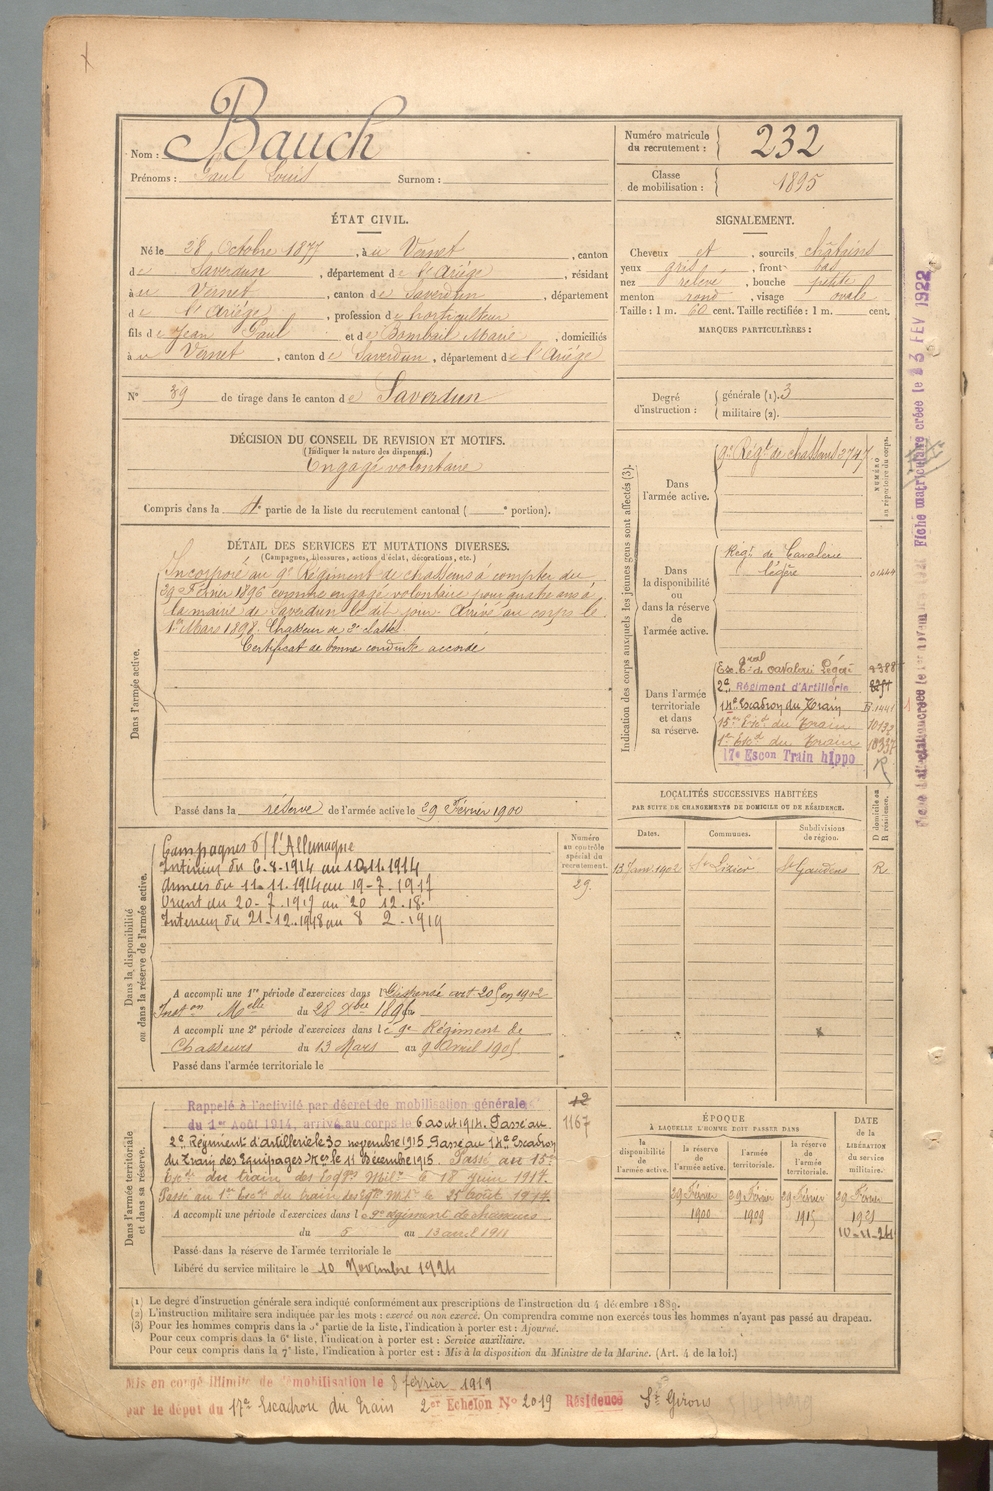 Nom : Bauch
Prénoms : Paul Louis Surnom :
Numéro matricule du recrutement : 232
Classe de mobilisation : 1895
ÉTAT CIVIL.
Né le 28 Octobre 1877, à u Vernet, canton
de Saverdun, département de l'Ariége, résidant
à u Vernet, canton de Saverdun, département
de l'Ariége, profession de horticulteur
fils de Jean Paul et de Bombail Marie, domiciliés
à u Vernet, canton de Saverdun, département de l'Ariége
N° 39 de tirage dans le canton de Saverdun
SIGNALEMENT.
Cheveux et, sourcils châtains
yeux gris, front bas
nez relevé, bouche petite
menton rond, visage ovale
Taille : 1 m. 60 cent. Taille rectifiée : 1 m. cent.
MARQUES PARTICULIÈRES :
Degré d'instruction : générale (1). 3
militaire (2).
DÉCISION DU CONSEIL DE REVISION ET MOTIFS.
(Indiquer la nature des dispenses.)
Engagé volontaire
Compris dans la partie de la liste du recrutement cantonal ( e portion).
DÉTAIL DES SERVICES ET MUTATIONS DIVERSES.
(Campagnes, blessures, actions d'éclat, décorations, etc.)
Dans l'armée active.
Incorporé au 9e Régiment de chasseurs à compter du
29 Février 1896 comme engagé volontaire pour quatre ans à
la mairie de Saverdun le dit jour. Arrivé au corps le
1er Mars 1898. Chasseur de 2e classe.
Certificat de bonne conduite accordé
Passé dans la réserve de l'armée active le 29 Février 1900
Indication des corps auxquels les jeunes gens sont affectés (3).
NUMÉRO au répertoire du corps.
Dans l'armée active.
9e Régt de chasseurs 2747
Dans la disponibilité ou dans la réserve de l'armée active.
Régt de Cavalerie
légère 01444
Dans l'armée territoriale et dans sa réserve.
de cavalerie Légère
2e Régiment d'Artillerie
14e Escadron du Train
15e du Train
1er du Train
17e Escon Train hippo
R
Fiche matriculaire créée le FEV 1922
LOCALITÉS SUCCESSIVES HABITÉES
PAR SUITE DE CHANGEMENTS DE DOMICILE OU DE RÉSIDENCE.
Dates. Communes. Subdivisions de région. D domicile ou R résidence.
13 Janv. 1902 St Lizier St Gaudens R
Dans la disponibilité ou dans la réserve de l'armée active.
Numéro au contrôle spécial du recrutement.
29
Campagnes d l'Allemagne
Intérieur du 6-8-1914 au 10.11.1914
Armées du 11-11.1914 au 19-7.1917
Orient du 20-7.1917 au 20 12.18.
Interieur du 21-12.1918 au 8 2-1919
A accompli une 1re période d'exercices dans l
du 28 au
A accompli une 2e période d'exercices dans l e 9e Régiment de
Chasseurs du 13 Mars au 9 Avril 1905
Passé dans l'armée territoriale le
Dans l'armée territoriale et dans sa réserve.
12
1167
Rappelé à l'activité par décret de mobilisation générale
du 1er Août 1914, arrivé au corps le 6 aout 1914. Passé au
2e Régiment d'artillerie le 30 novembre 1915 Passé au 14e Escadron
du Train des Equipages Mres le 11 Décembre 1915. Passé au 15e
du train des Milres le 18 juin 1917.
Passé au 1er du train des le 25 Août 1917.
A accompli une période d'exercices dans l e 9e régiment de chasseurs
du 5 au 13 avril 1911
Passé dans la réserve de l'armée territoriale le
Libéré du service militaire le 10 Novembre 1924
ÉPOQUE
À LAQUELLE L'HOMME DOIT PASSER DANS
DATE de la LIBÉRATION du service militaire.
la disponibilité de l'armée active. la réserve de l'armée active. l'armée territoriale. la réserve de l'armée territoriale.
29 Février 29 Février 29 Février 29 Février
1900 1909 1915 1921
10-11-24
(1) Le degré d'instruction générale sera indiqué conformément aux prescriptions de l'instruction du 4 décembre 1889.
(2) L'instruction militaire sera indiquée par les mots : exercé ou non exercé. On comprendra comme non exercés tous les hommes n'ayant pas passé au drapeau.
(3) Pour les hommes compris dans la 5e partie de la liste, l'indication à porter est : Ajourné.
Pour ceux compris dans la 6e liste, l'indication à porter est : Service auxiliaire.
Pour ceux compris dans la 7e liste, l'indication à porter est : Mis à la disposition du Ministre de la Marine. (Art. 4 de la loi.)
Mis en congé illimité de démobilisation le 8 février 1919
par le dépot du 17e Escadron du Train 2er Echelon N° 2019 Résidence St Girons